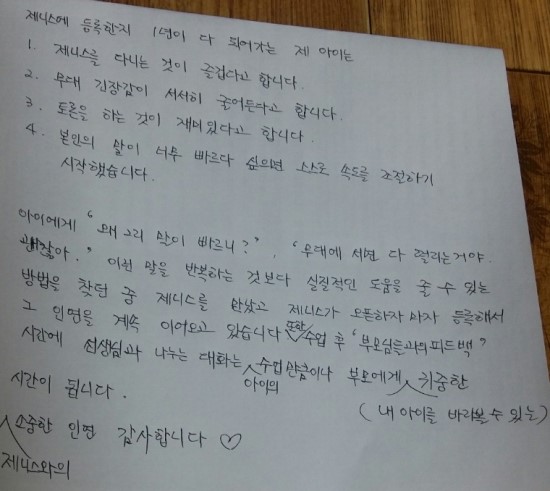 제니스에 등록한지 1년이 다 되어가는 제 아이는
1. 제니스를 다니는 것이 즐겁다고 합니다.
2. 무대 긴장감이 서서히 줄어든다고 합니다.
3. 토론을 하는 것이 재미있다고 합니다.
4. 본인의 말이 너무 빠르다 싶으면 스스로 속도를 조절하기
시작했습니다.
아이에게 "왜 그리 말이 빠르니?", "무대에 서면 다 떨리는거야.
괜찮아." 이런 말을 반복하는 것보다 실질적인 도움을 줄 수 있는
방법을 찾던 중 제니스를 만났고 제니스가 오픈하자마자 등록해서
그 인연을 계속 이어오고 있습니다 또한 수업 후 "부모님들과의 피드백"
시간에 선생님과 나누는 대화는 아이의 수업만큼이나 부모에게 귀중한
(내 아이를 바라볼 수 있는)
시간이 됩니다.
소중한 인연 감사합니다 ♡
제니스와의